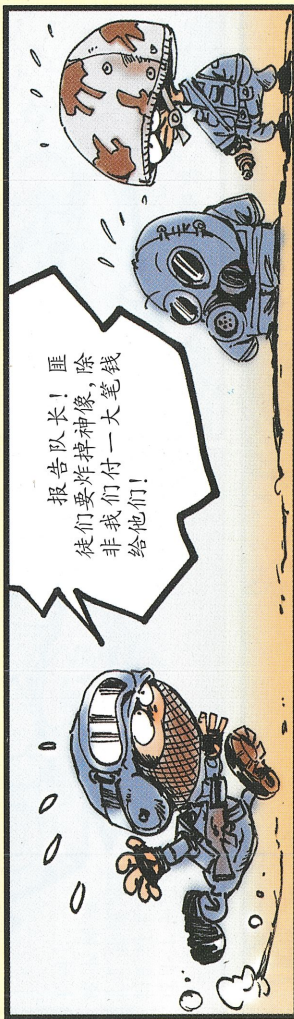 报告队长！匪
徒们要炸掉神像，除
非我们付一大笔钱
给他们！